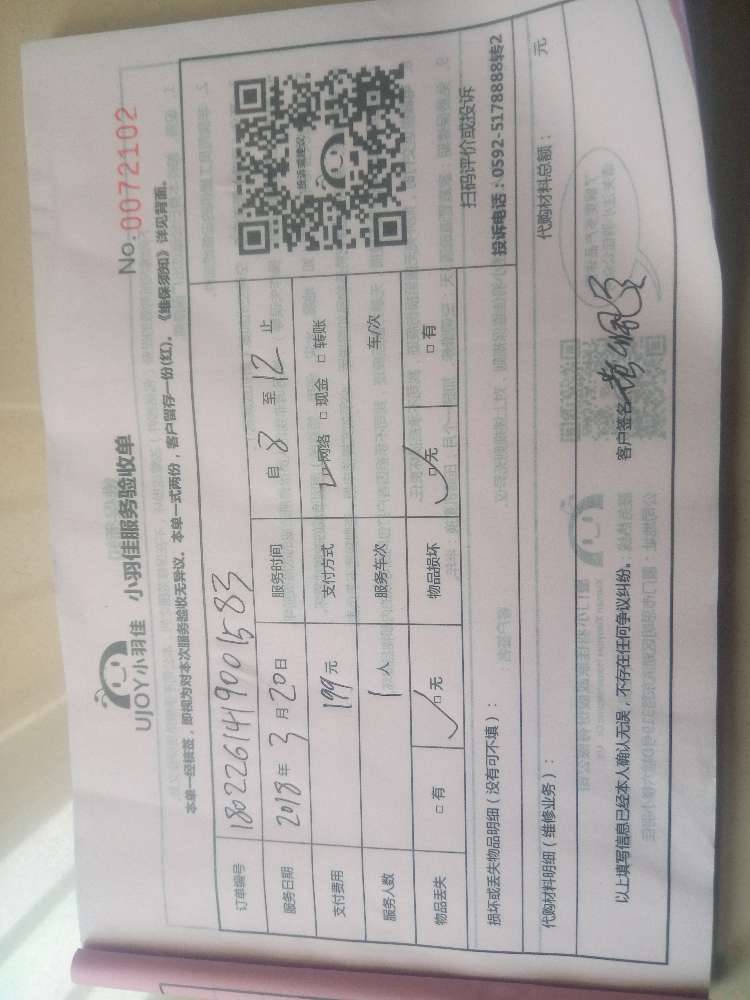 UJOY小羽佳 小羽佳服务验收单 No:0072102
本单一经核签，即视为对本次服务验收无异议。本单一式两份，客户留存一份(红)。《维保须知》详见背面。
订单编号 1802261419001583
服务日期 2018年3月20日 服务时间 自 8 至 12 止
支付费用 199元 支付方式 □网络 □现金 □转账
服务人数 1人 服务车次 车/次
物品丢失 □有 □无 物品损坏 □无 □有
投诉或建议
扫码评价或投诉
投诉电话：0592-5178888转2
损坏或丢失物品明细（没有可不填）：
代购材料明细（维修业务）： 代购材料总额： 元
以上填写信息已经本人确认无误，不存在任何争议纠纷。 客户签名